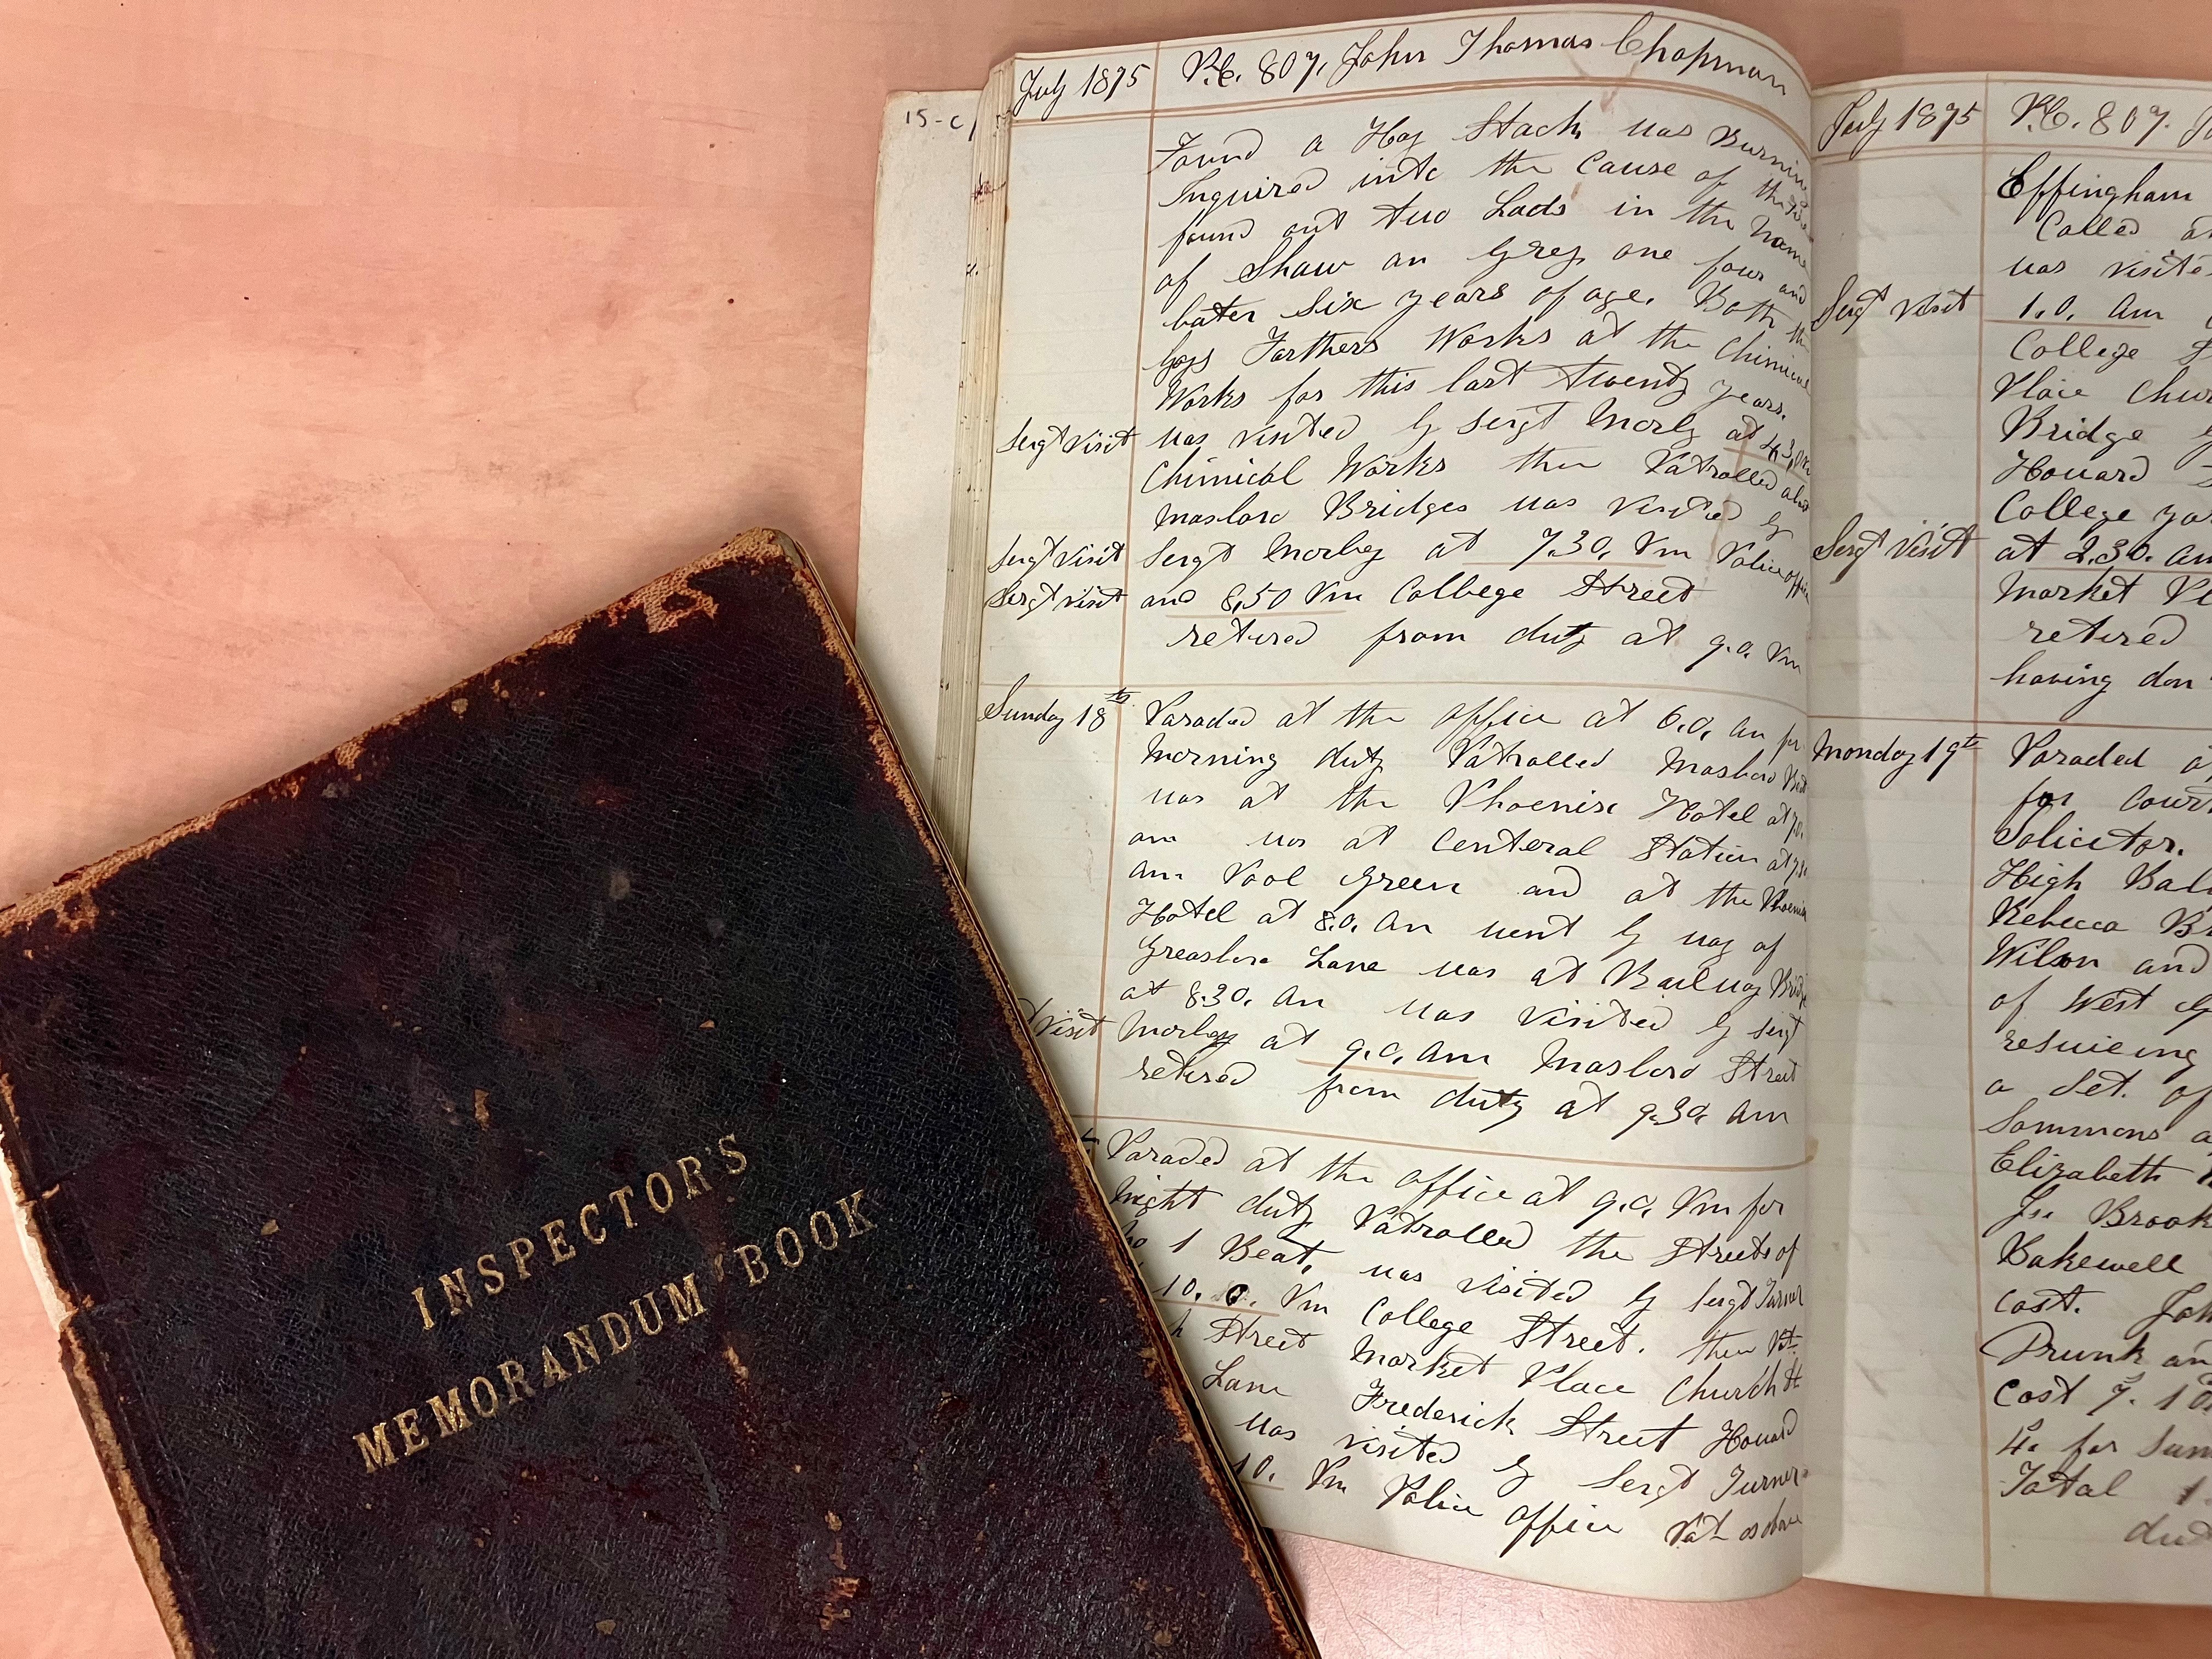 INSPECTOR'S
MEMORANDUM BOOK
15-c/
July 1875
P.C. 807, John Thomas Chapman
Found a Hay Stack was Burning
Inquired into the Cause of the
found out two Lads in the Name
of Shaw an Grey one four and
later six years of age. Both the
boys Farthers Works at the Chimical
Works for this last twenty years.
Sergt Visit
was visited by Sergt Morley at 4.30
Chimical Works then Patrolled
Masboro Bridges was visited by
Sergt Visit
Sergt Morley at 7.30. Pm Police office
Sergt Visit
and 8.50 Pm College Street
retired from duty at 9.0. Pm
Sunday 18th
Paraded at the office at 6.0. am for
Morning duty Patrolled Masboro
was at the Phoenix Hotel at
am was at Centeral Station at
am Pool Green and at the Phoenix
Hotel at 8.0. am went by way of
Greasboro Lane was at Railway Bridge
at 8.30. am was visited by Sergt
Visit
Morley at 9.0. am Masboro Street
retired from duty at 9.30 am
Paraded at the office at 9.0. Pm for
Night duty Patrolled the Streets of
No 1 Beat, was visited by Sergt Turner
10. 0. Pm College Street. then Pat
h Street Market Place Church St
Lane Frederick Street Howard
was visited by Sergt Turner
10. Pm Police office Pat as above
July 1875
P.C. 807. J
Effingham
Called
was visite
Sergt Visit
1.0. am
College
Place Chur
Bridge
Howard
College
Sergt Visit
at 2.30. am
Market Pl
retired
having don
Monday 19th
Paraded a
for Court
Solicitor.
High Bail
Rebecca Br
Wilson and
of West
resuieing
a Set. of
Sommons a
Elizabeth
Js. Brook
Bakewell
Cost. Joh
Drunk an
Cost 7. 10
4. for Sum
Total 1
dut